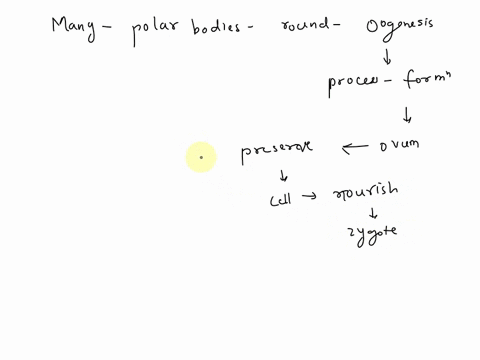 Many - polar bodies - round - Oogenesis
↓
proces - formⁿ
↓
preserve ← ovum
↓
cell → nourish
↓
zygote